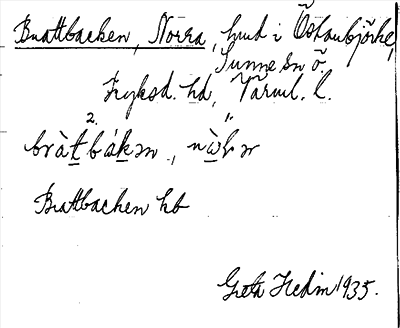 Brattbacken, Norra, hmd i Östanbjörke,
Sunne sn ö.
Fryksd. hd, Värml. l.
2.
bràt bákən, nò
Brattbacken kb
Greta Hedin 1935.